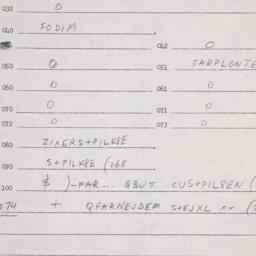 032 0
040 FODIM
042 0
050 0
051 FARPLONTE
060 0
061 0
070 0
071 0
072 0
073 0
080 ZIXERS+PILK8E
090 S+PILK8E (268
100 $ )-FAR... QBUT CUS+PIL8EN (
074 + QFARNEJDEM S+EJXL ×× (